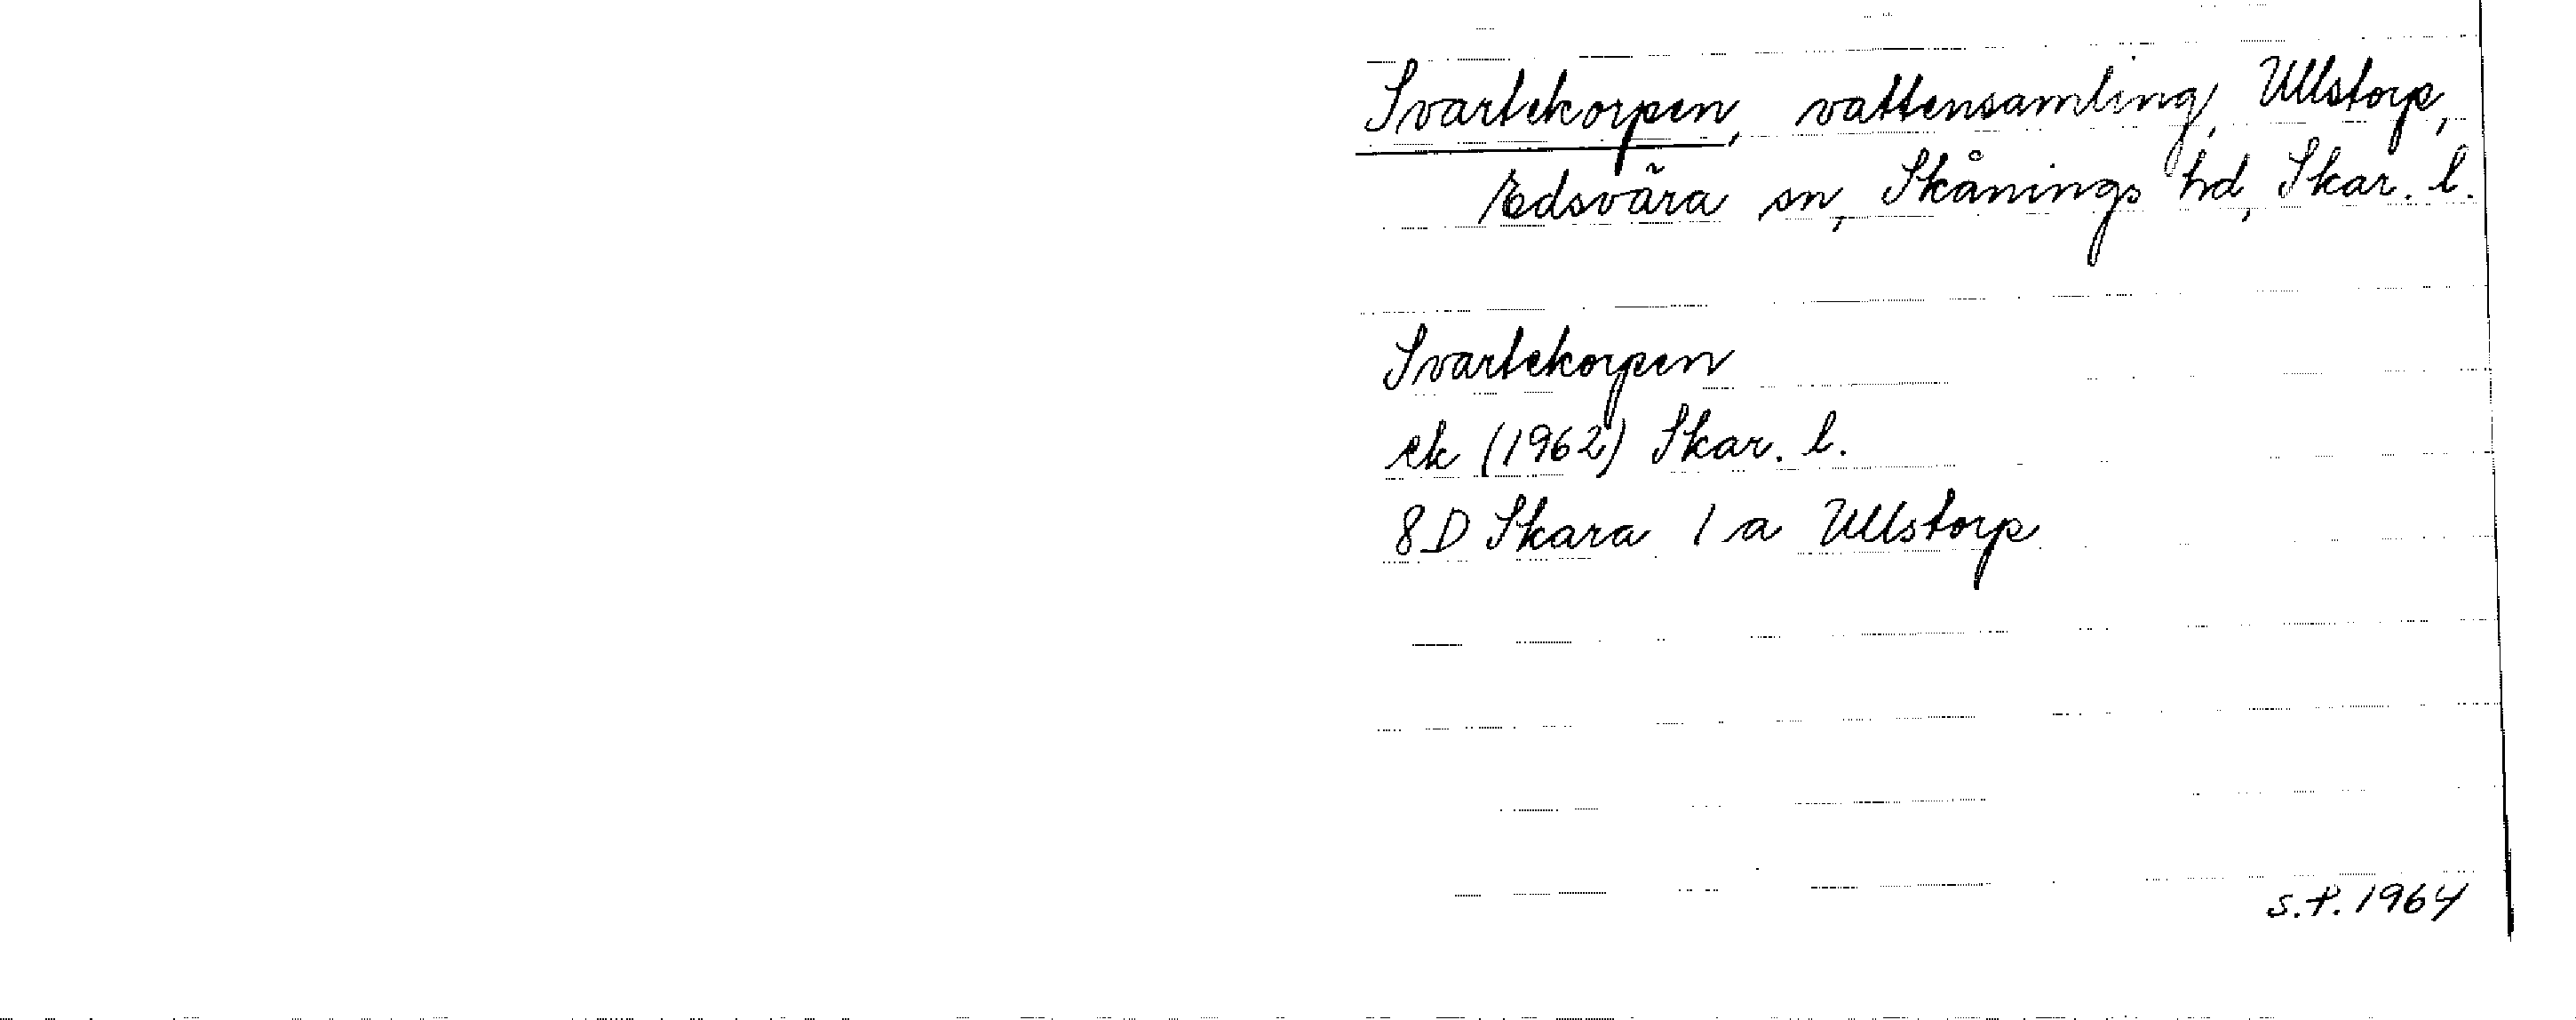 Svartekorpen, vattensamling, Ullstorp,
Edsvära sn, Skånings hd, Skar. l.
Svartekorpen
ek (1962) Skar. l.
8D Skara 1 a Ullstorp
s.t. 1964